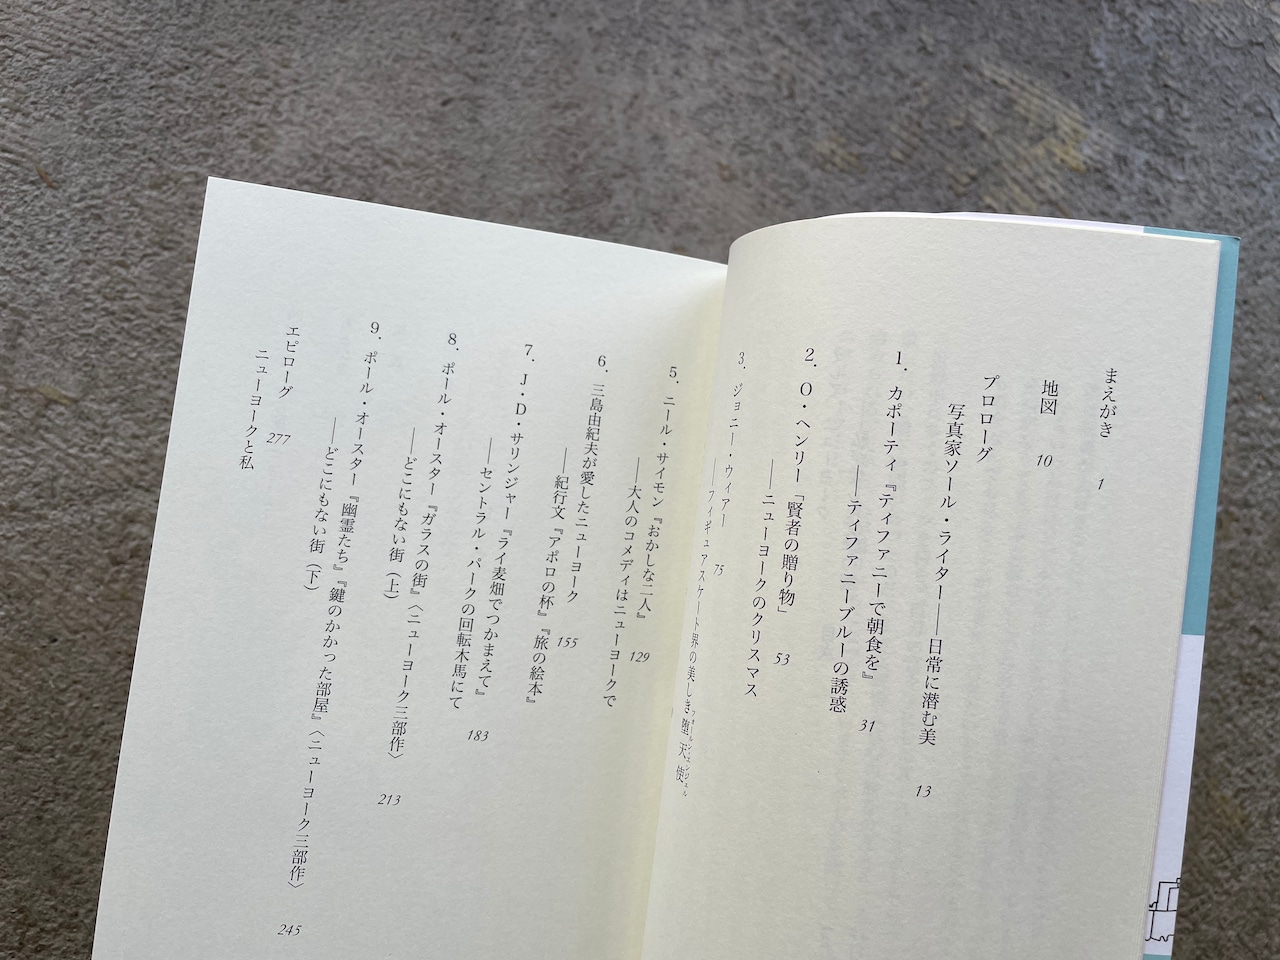 まえがき 1
地図 10
プロローグ
写真家ソール・ライター——日常に潜む美 13
1. カポーティ『ティファニーで朝食を』
——ティファニーブルーの誘惑 31
2. O・ヘンリー「賢者の贈り物」 53
——ニューヨークのクリスマス
3. ジョニー・ウィアー 75
——フィギュアスケート界の美しき堕天使
フォールンエンジェル
5. ニール・サイモン『おかしな二人』 129
——大人のコメディはニューヨークで
6. 三島由紀夫が愛したニューヨーク 155
——紀行文『アポロの杯』『旅の絵本』
7. J・D・サリンジャー『ライ麦畑でつかまえて』 183
——セントラル・パークの回転木馬にて
8. ポール・オースター『ガラスの街』〈ニューヨーク三部作〉 213
——どこにもない街（上）
9. ポール・オースター『幽霊たち』『鍵のかかった部屋』〈ニューヨーク三部作〉 245
——どこにもない街（下）
エピローグ 277
ニューヨークと私